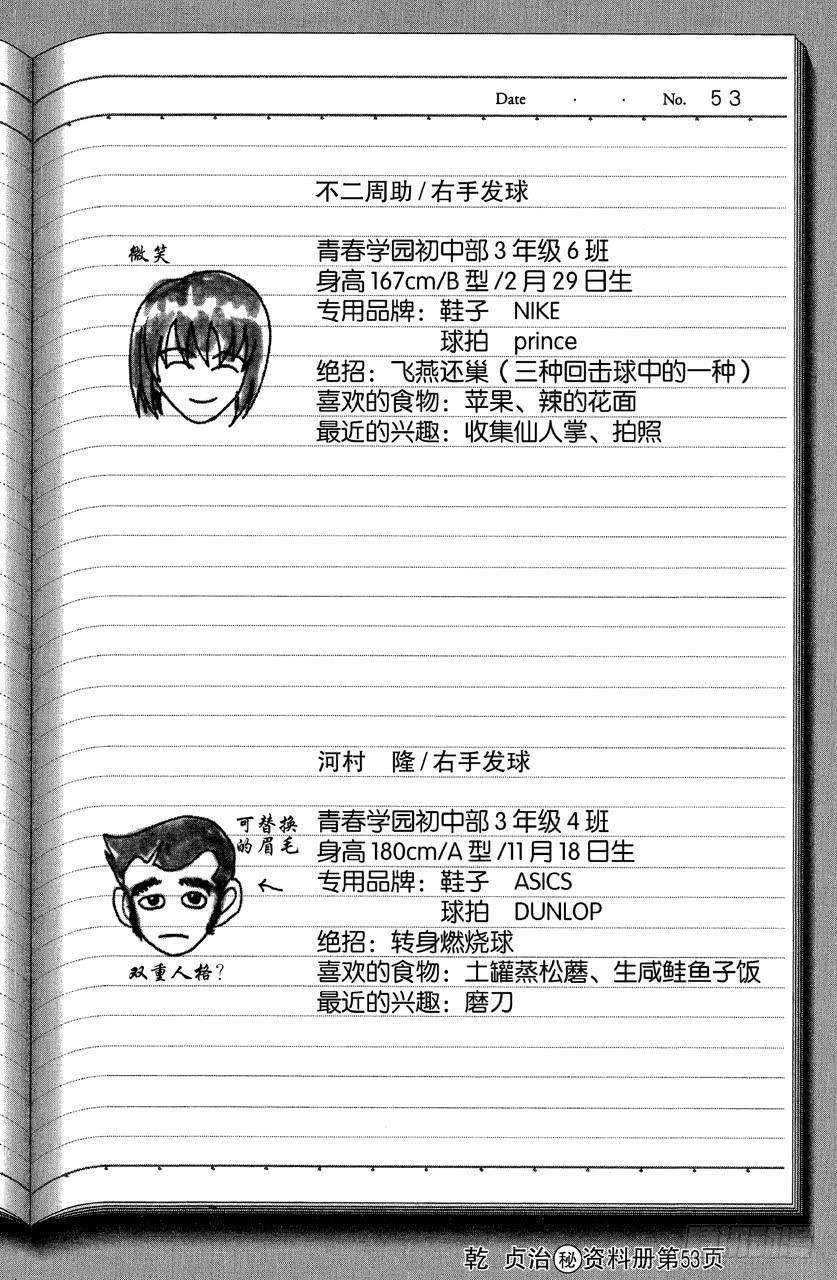 Date · · No. 53
不二周助/右手发球
微笑
青春学园初中部3年级6班
身高167cm/B型/2月29日生
专用品牌：鞋子 NIKE
球拍 prince
绝招：飞燕还巢（三种回击球中的一种）
喜欢的食物：苹果、辣的花面
最近的兴趣：收集仙人掌、拍照
河村 隆/右手发球
可替换
的眉毛
青春学园初中部3年级4班
身高180cm/A型/11月18日生
专用品牌：鞋子 ASICS
球拍 DUNLOP
绝招：转身燃烧球
双重人格？
喜欢的食物：土罐蒸松蘑、生咸鲑鱼子饭
最近的兴趣：磨刀
乾 贞治㊙资料册第53页